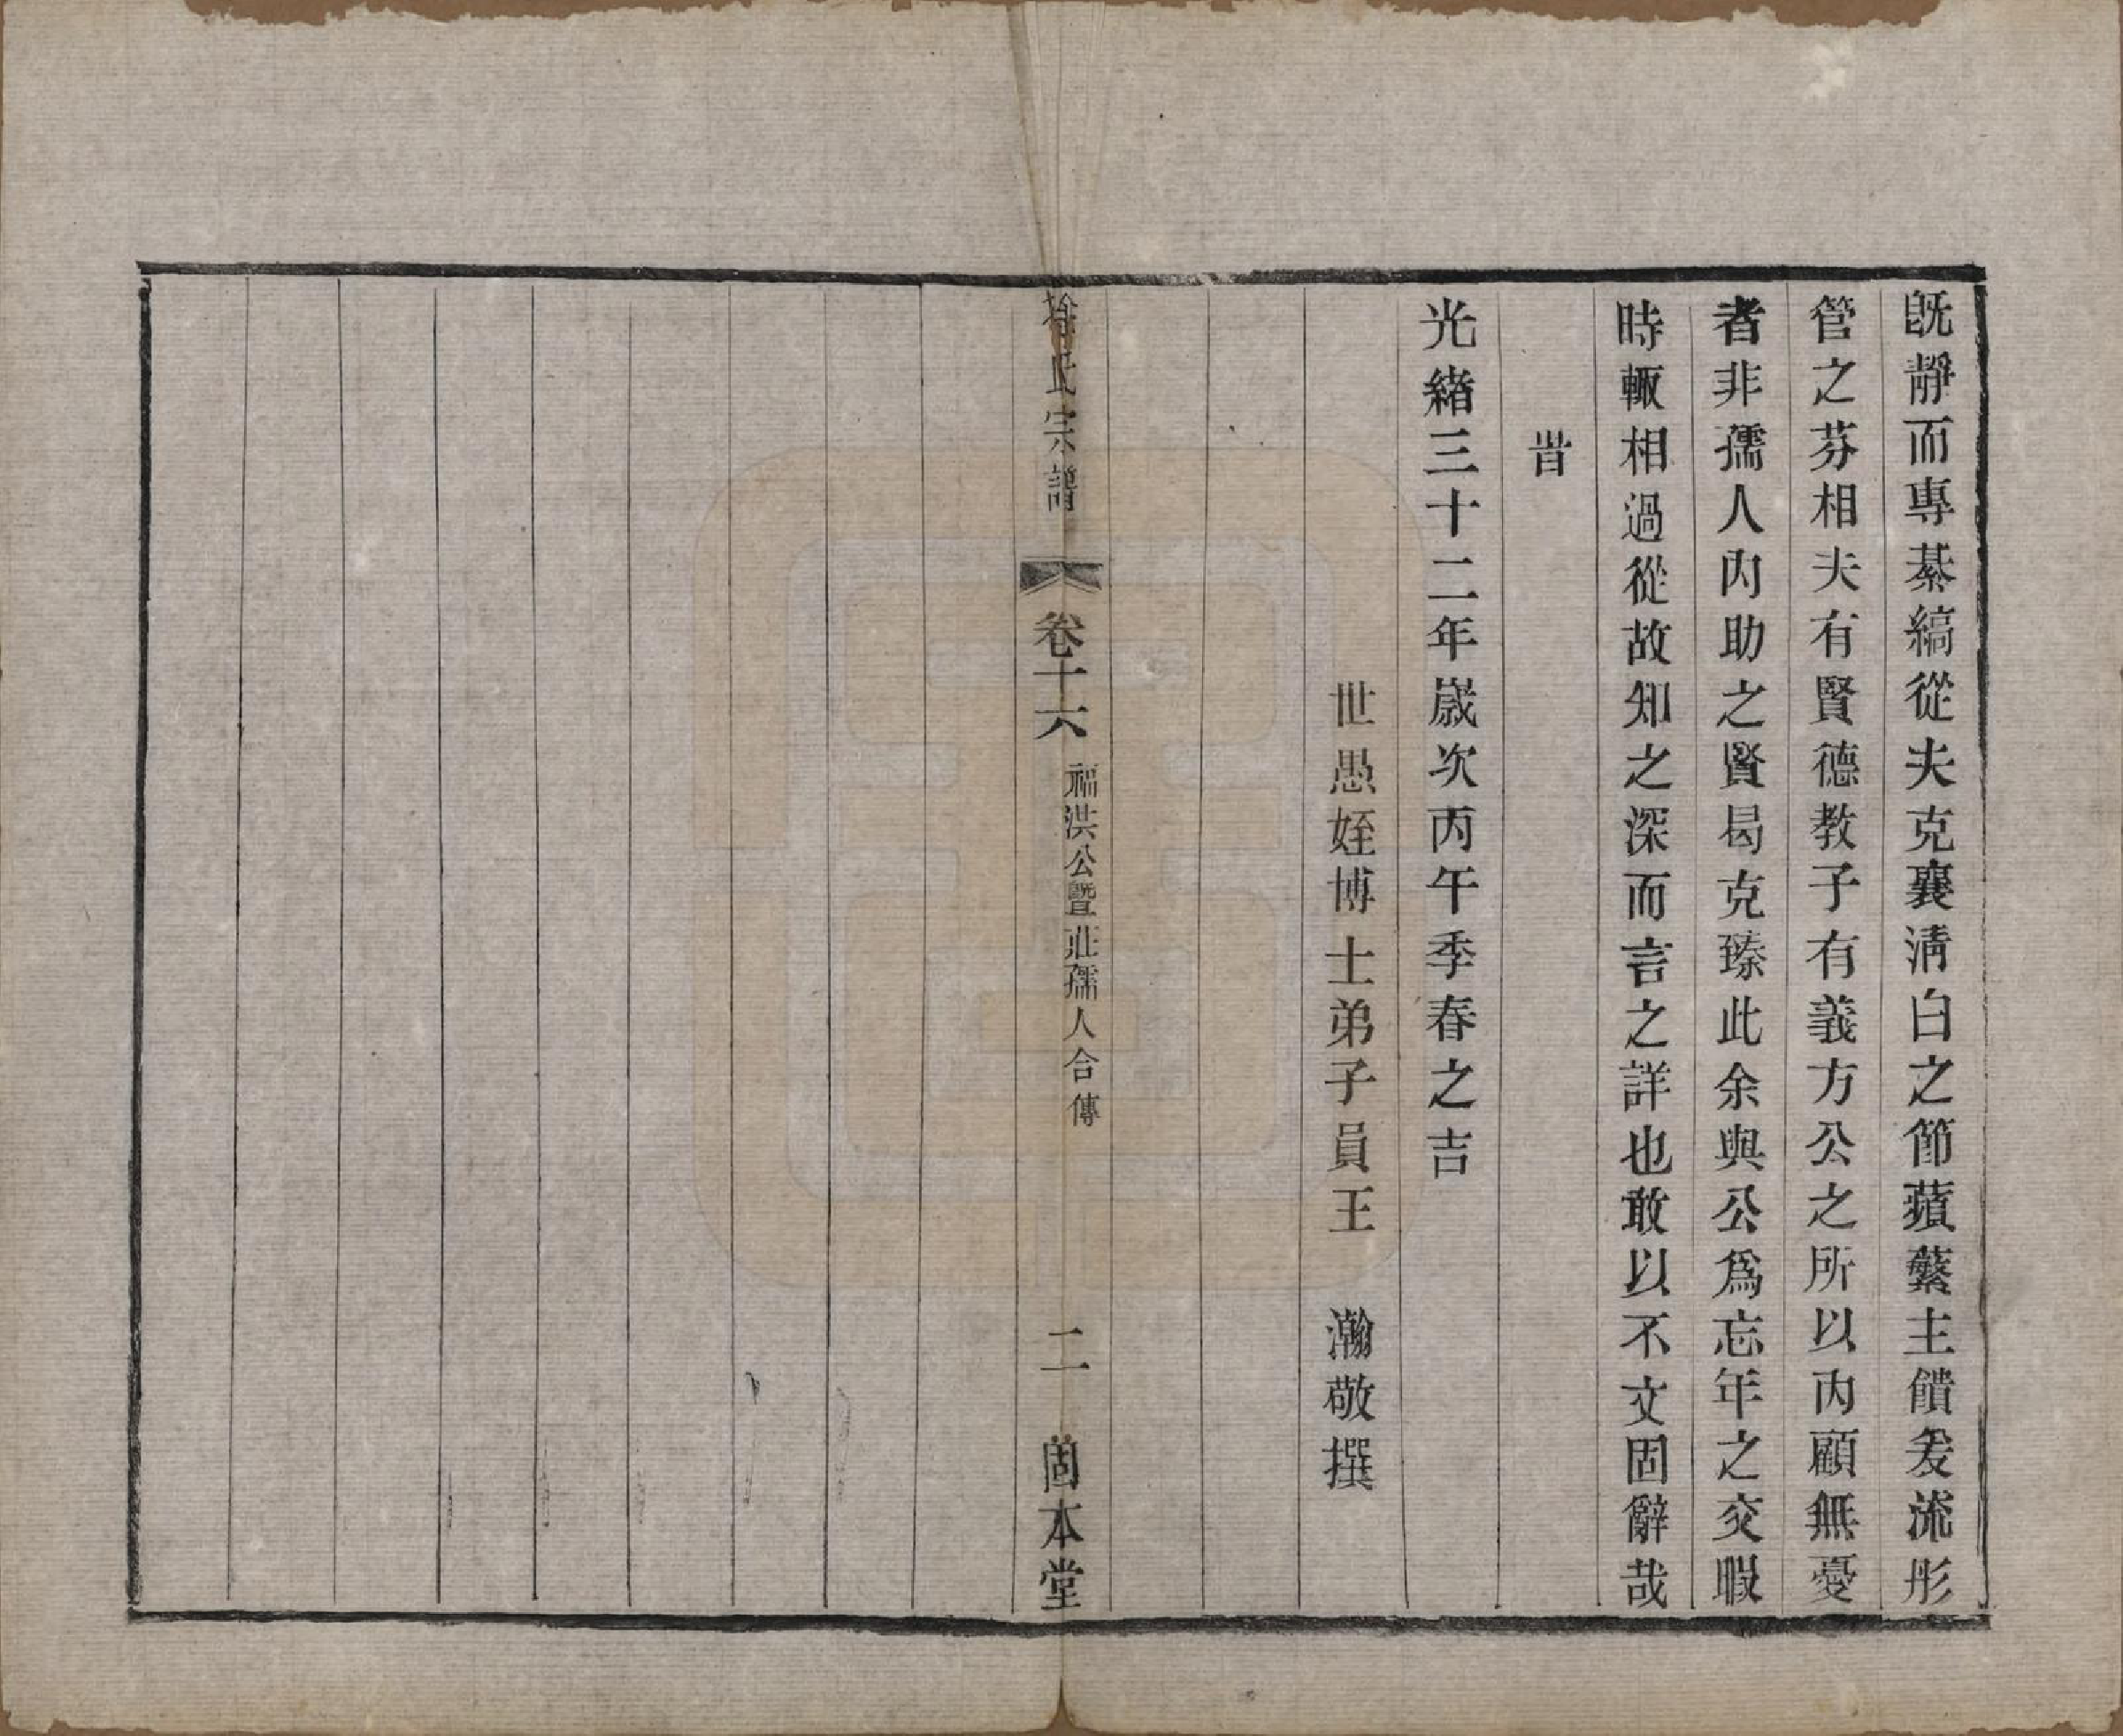 既靜而專綦縞從夫克襄淸白之節蘋蘩主饋爰流彤
管之芬相夫有賢德教子有義方公之所以內顧無憂
者非孺人內助之賢曷克臻此余與公爲忘年之交暇
時輒相過從故知之深而言之詳也敢以不文固辭哉
旹
光緒三十二年歲次丙午季春之吉
世愚姪博士弟子員王　瀚敬撰
徐氏宗譜　卷十六　福洪公曁莊孺人合傳　二　固本堂